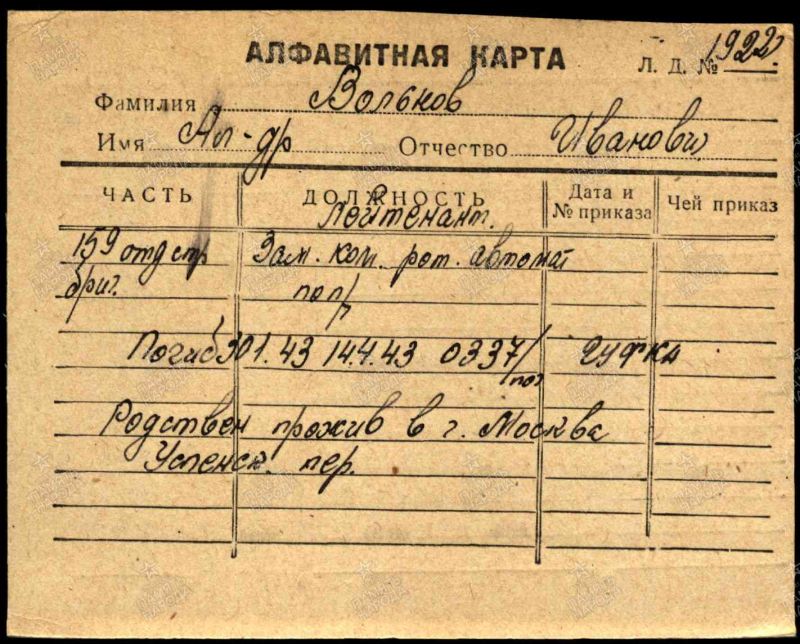 АЛФАВИТНАЯ КАРТА
Л. Д. № 1922
Фамилия Вольнов
Имя Ал-др Отчество Иванович
ЧАСТЬ ДОЛЖНОСТЬ Дата и № приказа Чей приказ
Лейтенант.
159 отд стр Зам. ком. рот. автомат
бриг. поп/
Погиб 30 1.43 14.4.43 0337/ ГУФКА
пог
Родствен прожив в г. Москва
Успенск. пер.